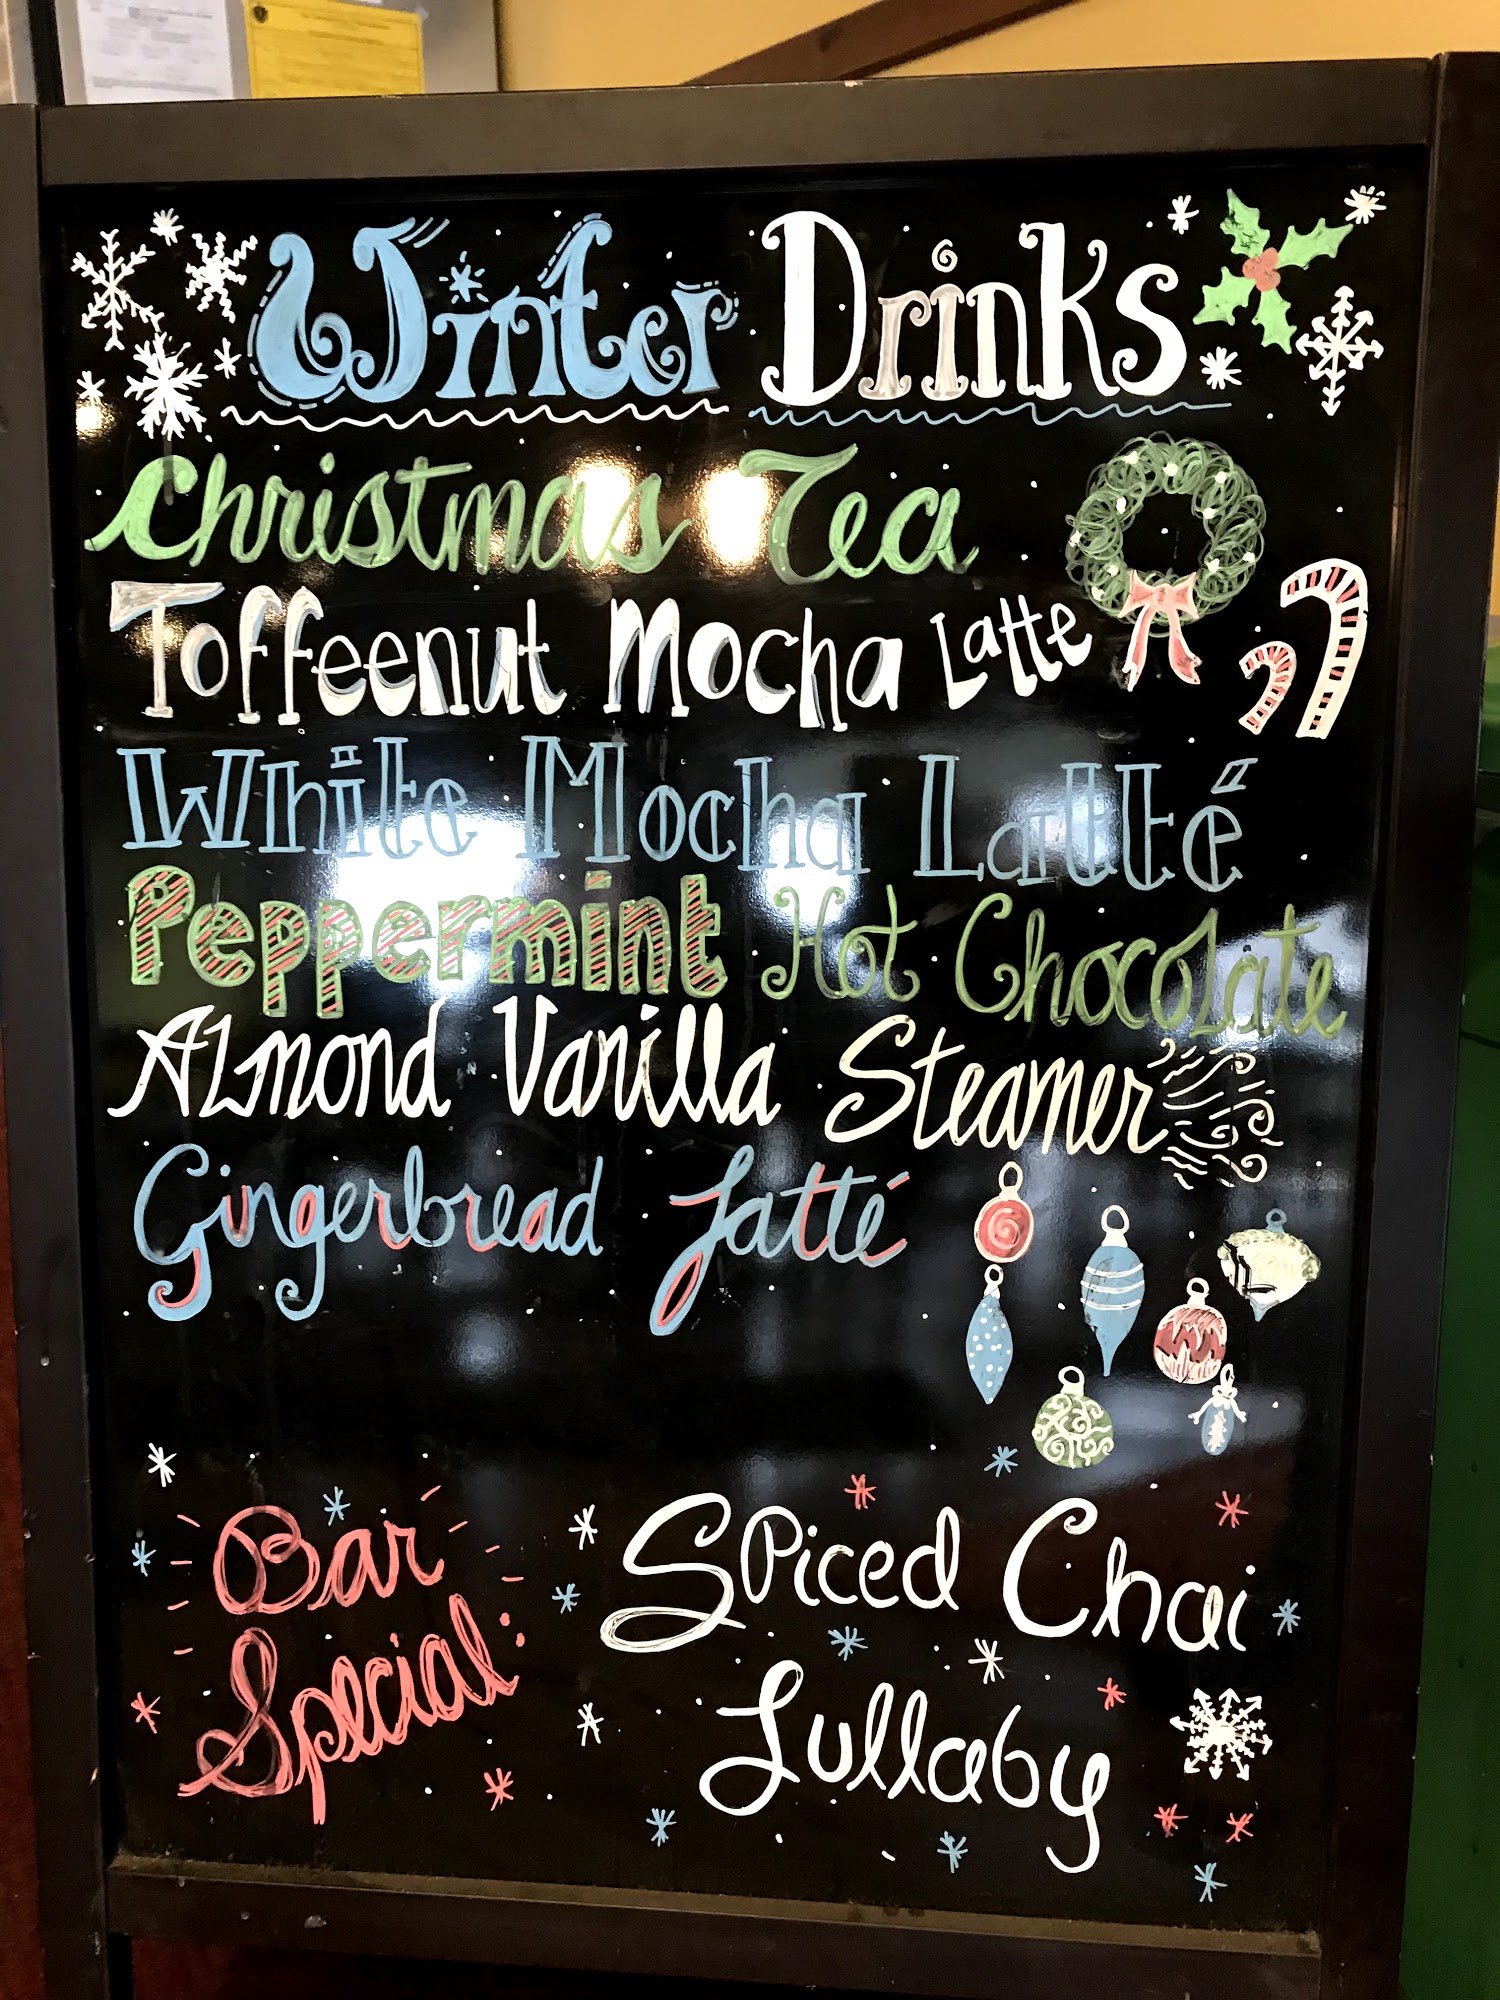 Winter Drinks
Christmas Tea
Toffeenut Mocha Latte
White Mocha Latté
Peppermint Hot Chocolate
Almond Vanilla Steamer
Gingerbread Latté
Bar
Special:
Spiced Chai
Lullaby